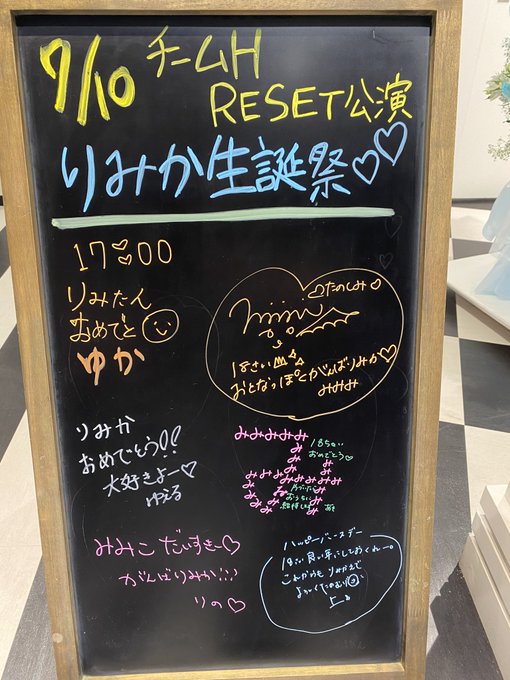 7/10 チームH
RESET公演
りみか生誕祭♡♡
17:00
りみたん
おめでと
ゆか
♡たのしみ♡
18さい
おとなっぽくがんばりみか♡
みみみ
りみか
おめでとう!!
大好きよー♡
ゆえる
みみみみみ
み
み
み
みみみみみみみ
み
み
18さい
おめでとう♡
みみこ だいすきー♡
がんばりみか!!!
りの♡
ハッピーバースデー
18さい良い年にしておくれー。
これからも りみかえで